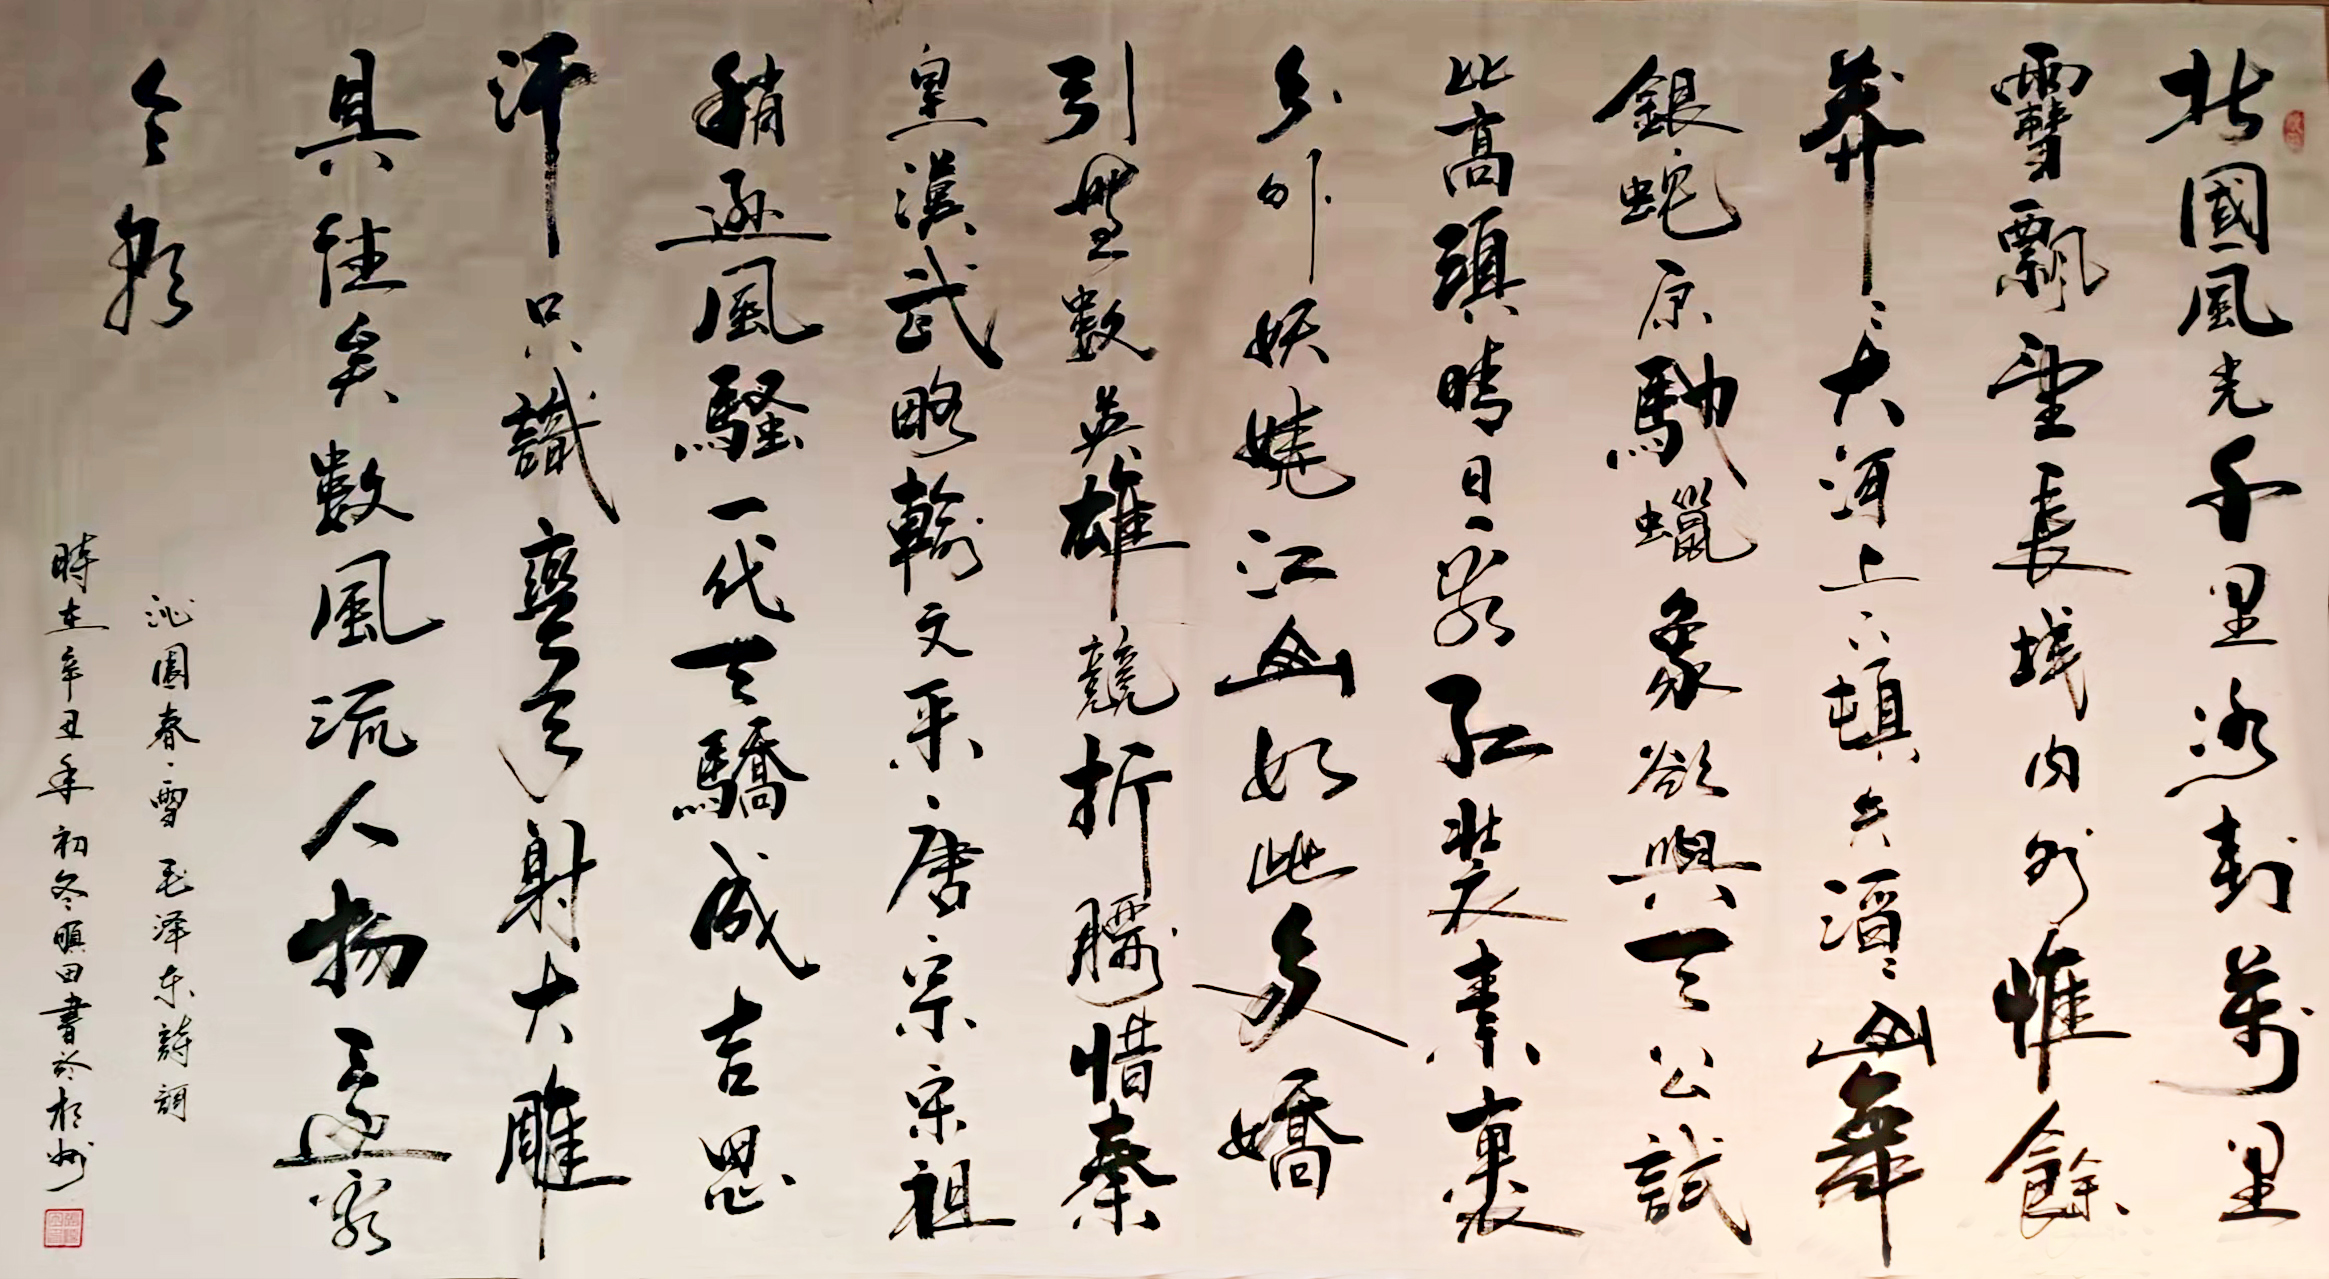 北國風光千里冰封萬里
雪飄望長城內外惟餘
莽〻大河上下頓失滔〻山舞
銀蛇原馳蠟象欲與天公試
比高須晴日看紅裝素裹
分外妖嬈江山如此多嬌
引無數英雄競折腰惜秦
皇漢武略輸文采唐宗宋祖
稍遜風騷一代天驕成吉思
汗只識彎弓射大雕
具往矣數風流人物還看
今朝
沁園春·雪 毛泽东詩詞
時在辛丑年初冬田書於杭州